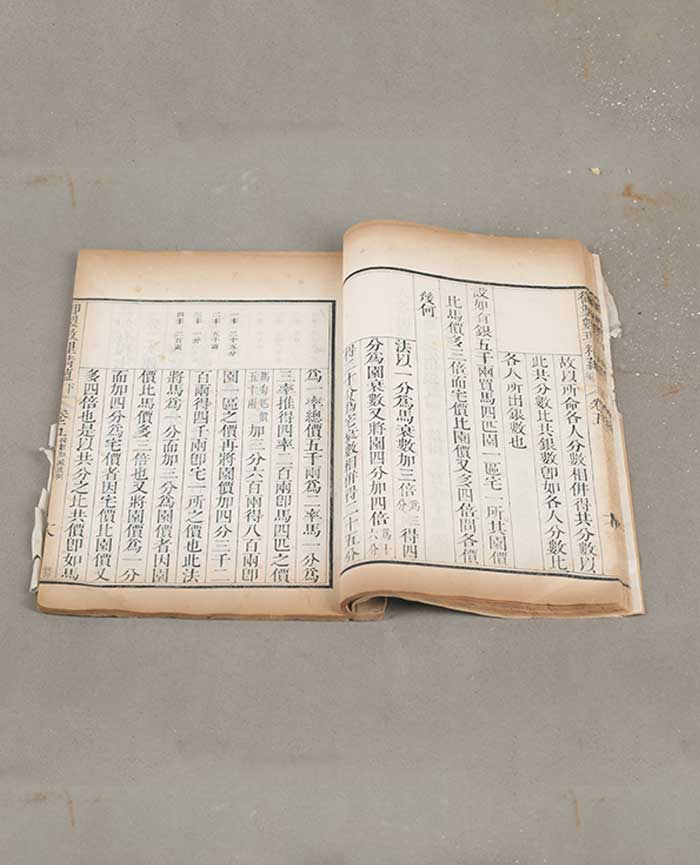 御製數理精蘊 卷五
故以所命各人分數相併得其分數以
此共分數比共銀數卽如各人分數比
各人所出銀數也
設如有銀五千兩買馬四匹園一區宅一所其園價
比馬價多三倍而宅價比園價又多四倍問各價
幾何
法以一分爲馬衰數加三倍爲三分得四
分爲園衰數又將園四分加四倍爲十六分
得二十分爲宅衰數相併得二十五分
一率 二十五分
二率 五千兩
三率 一分
四率 二百兩
爲一率總價五千兩爲二率馬一分爲
三率推得四率二百兩卽馬四匹之價
馬每匹價五十兩加三分六百兩得八百兩卽
園一區之價再將園價加四分三千二
百兩得四千兩卽宅一所之價也此法
將馬爲一分而加三分爲園價者因園
價比馬價多三倍也又將園價爲一分
而加四分爲宅價者因宅價比園價又
多四倍也是以共分之比共價卽如馬
御製數理精蘊下 卷五